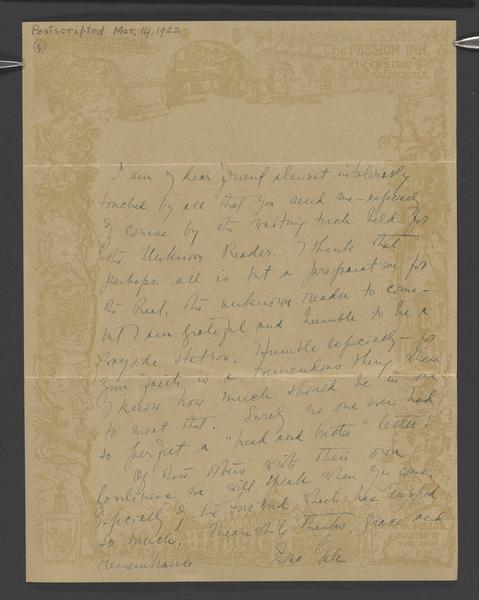 Postscripted Mar. 14, 1922
The MISSION INN,
RIVERSIDE
CALIFORNIA
I am my dear friend almost intolerably
touched by all that you send me - especially
of course by the waiting held for
the Unknown Reader. I think that
perhaps all is but a preparation for
the Real, the unknown reader to come -
but I am grateful and humble to be a
wayside station. Humble especially - for
your faith is a tremendous thing when
I know how much should be in one
to meet that. Surely no one ever had
so perfect a "bread and butter" letter!
Of these others with their own
loveliness we will speak when you come,
Especially of the Foreword which has
so much. Meanwhile thanks, grace and
Zona Gale
MASTER OF
THE INN